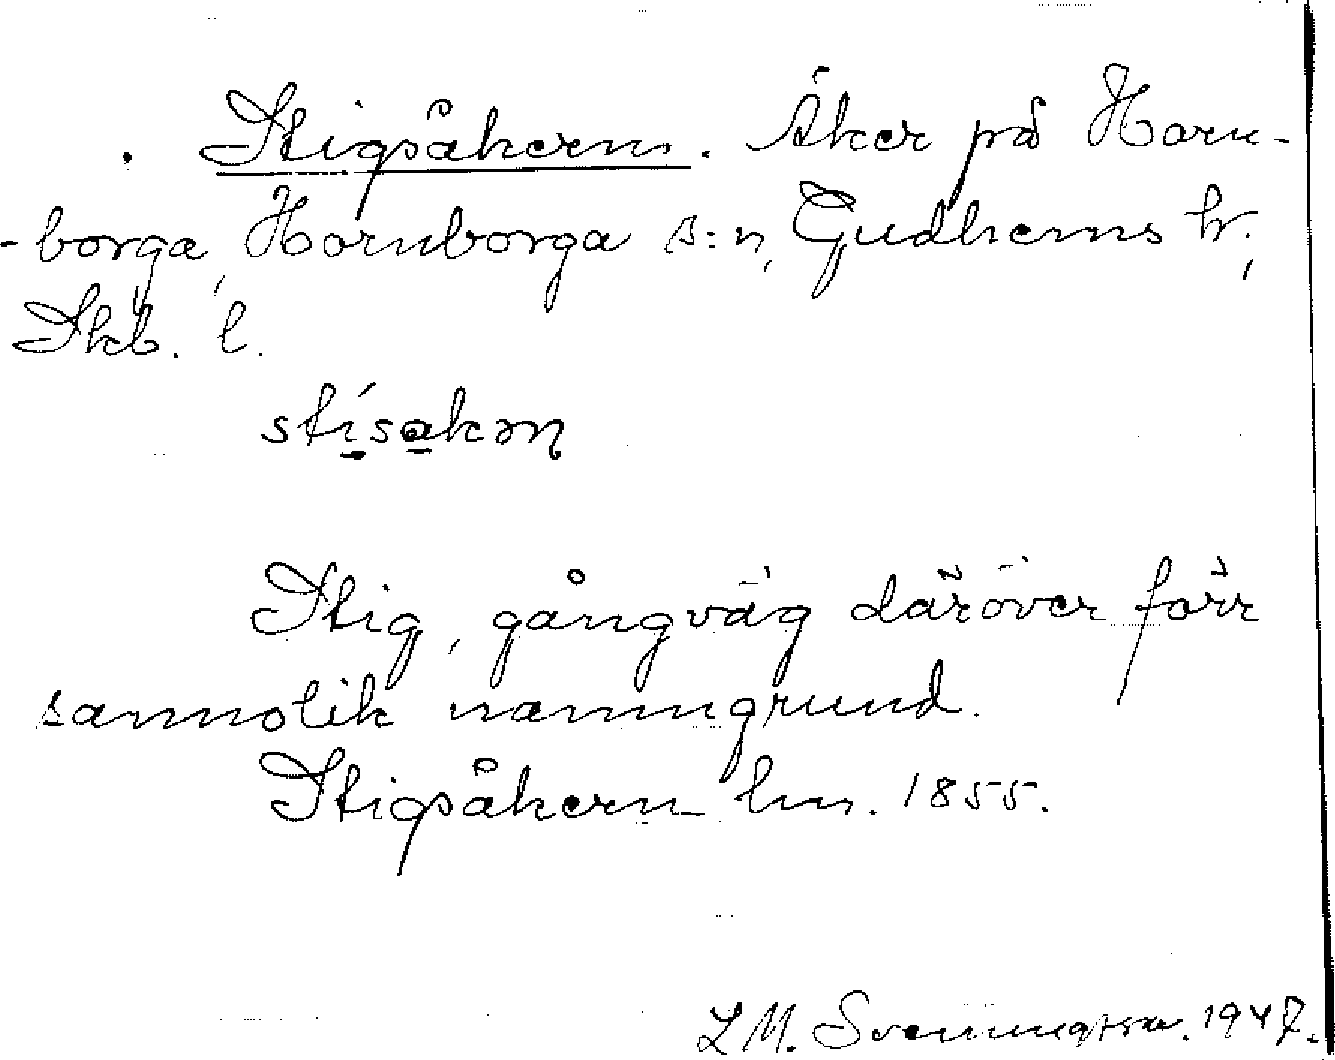 Stigsåkern. Åker på Horn-
-borga, Hornborga s:n, Gudhems hr.,
Skb. l.
stísakən
Stig, gångväg däröver förr
sannolik namngrund.
Stigsåkern hm. 1855.
L M. Svenungsson. 1947.